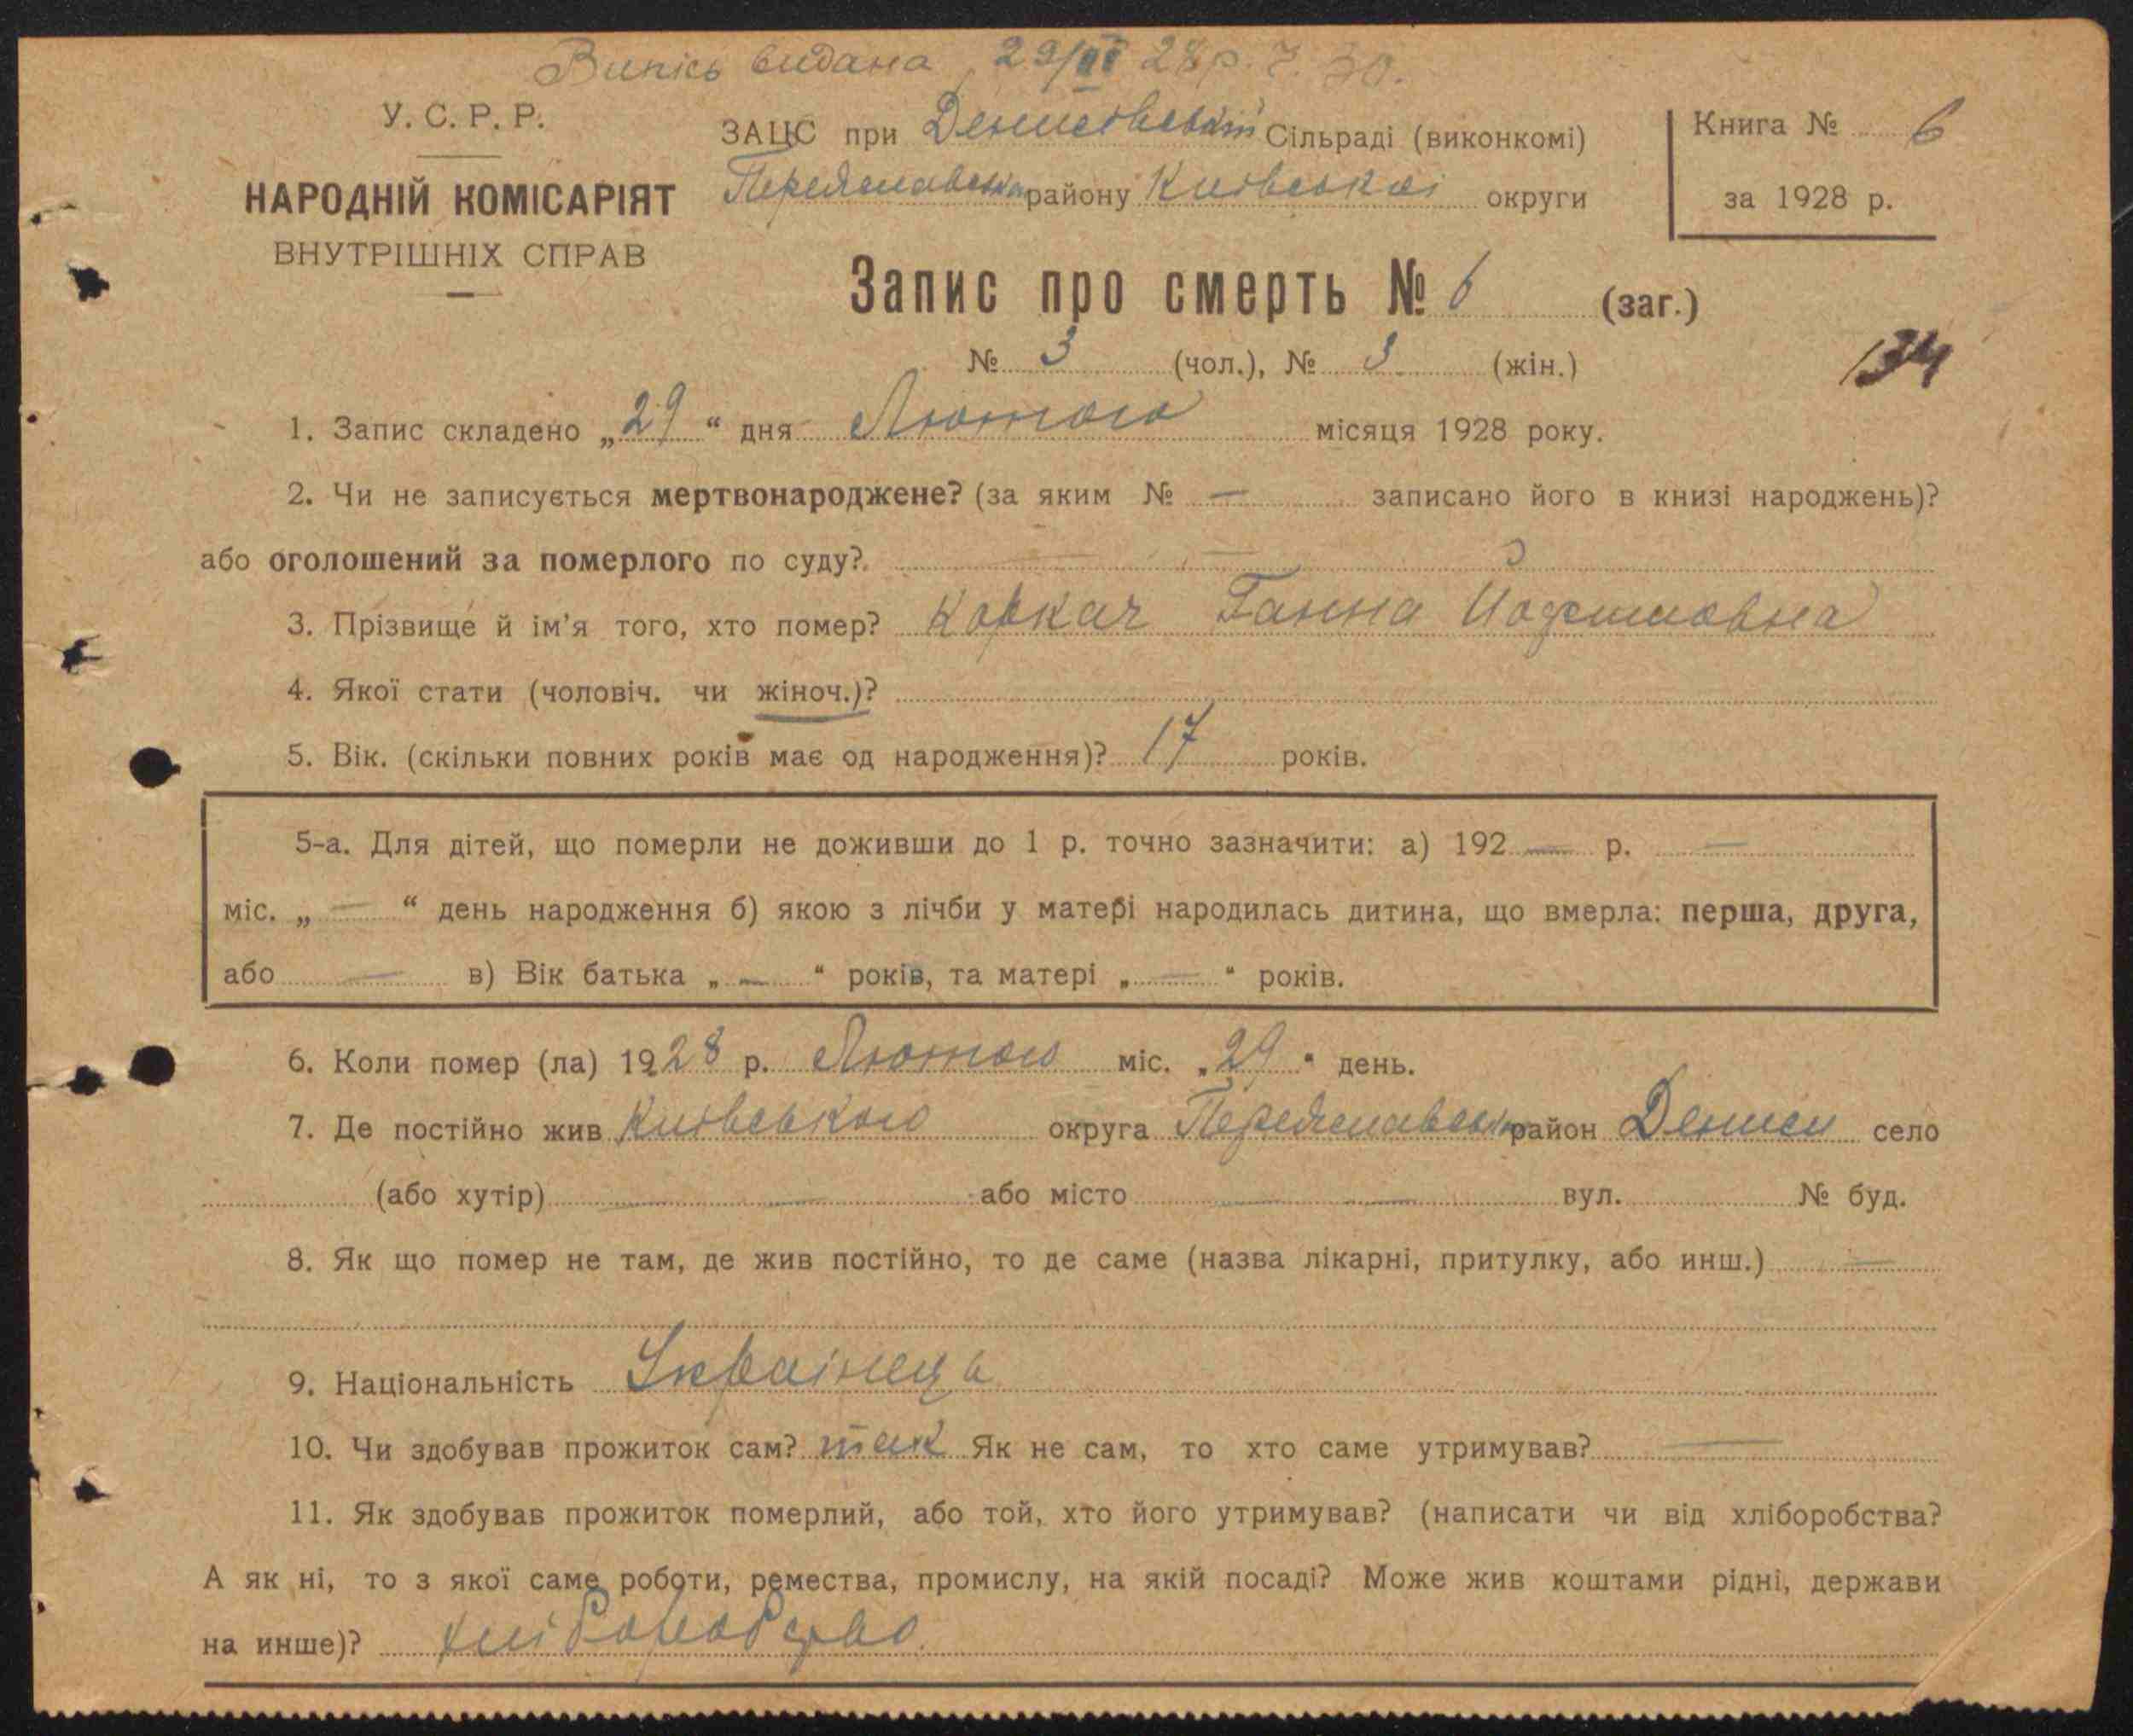 Випісь видана 29/III 28 р. Ч. 30.
У. С. Р. Р.
НАРОДНІЙ КОМІСАРІЯТ
ВНУТРІШНІХ СПРАВ
ЗАЦС при Денисівській Сільраді (виконкомі)
Переяславськ району Київської округи
Книга № 6
за 1928 р.
Запис про смерть № 6 (заг.)
№ 3 (чол.), № 3 (жін.)
134
1. Запис складено „29“ дня Лютого місяця 1928 року.
2. Чи не записується мертвонароджене? (за яким № — записано його в книзі народжень)?
або оголошений за померлого по суду? — —
3. Прізвище й ім'я того, хто помер? Коркач Ганна
4. Якої стати (чоловіч. чи жіноч.)?
5. Вік. (скільки повних років має од народження)? 17 років.
5-а. Для дітей, що померли не доживши до 1 р. точно зазначити: а) 192 — р. —
міс. „ — “ день народження б) якою з лічби у матері народилась дитина, що вмерла: перша, друга,
або — в) Вік батька „ — “ років, та матері „ — “ років.
6. Коли помер (ла) 1928 р. Лютого міс. „29“ день.
7. Де постійно жив Київського округа Переяславськ район Дениси село
(або хутір) — або місто — вул. № буд.
8. Як що помер не там, де жив постійно, то де саме (назва лікарні, притулку, або инш.) —
9. Національність Українець
10. Чи здобував прожиток сам? так Як не сам, то хто саме утримував? —
11. Як здобував прожиток померлий, або той, хто його утримував? (написати чи від хліборобства?
А як ні, то з якої саме роботи, ремества, промислу, на якій посаді? Може жив коштами рідні, держави
на инше)? хліборобство.